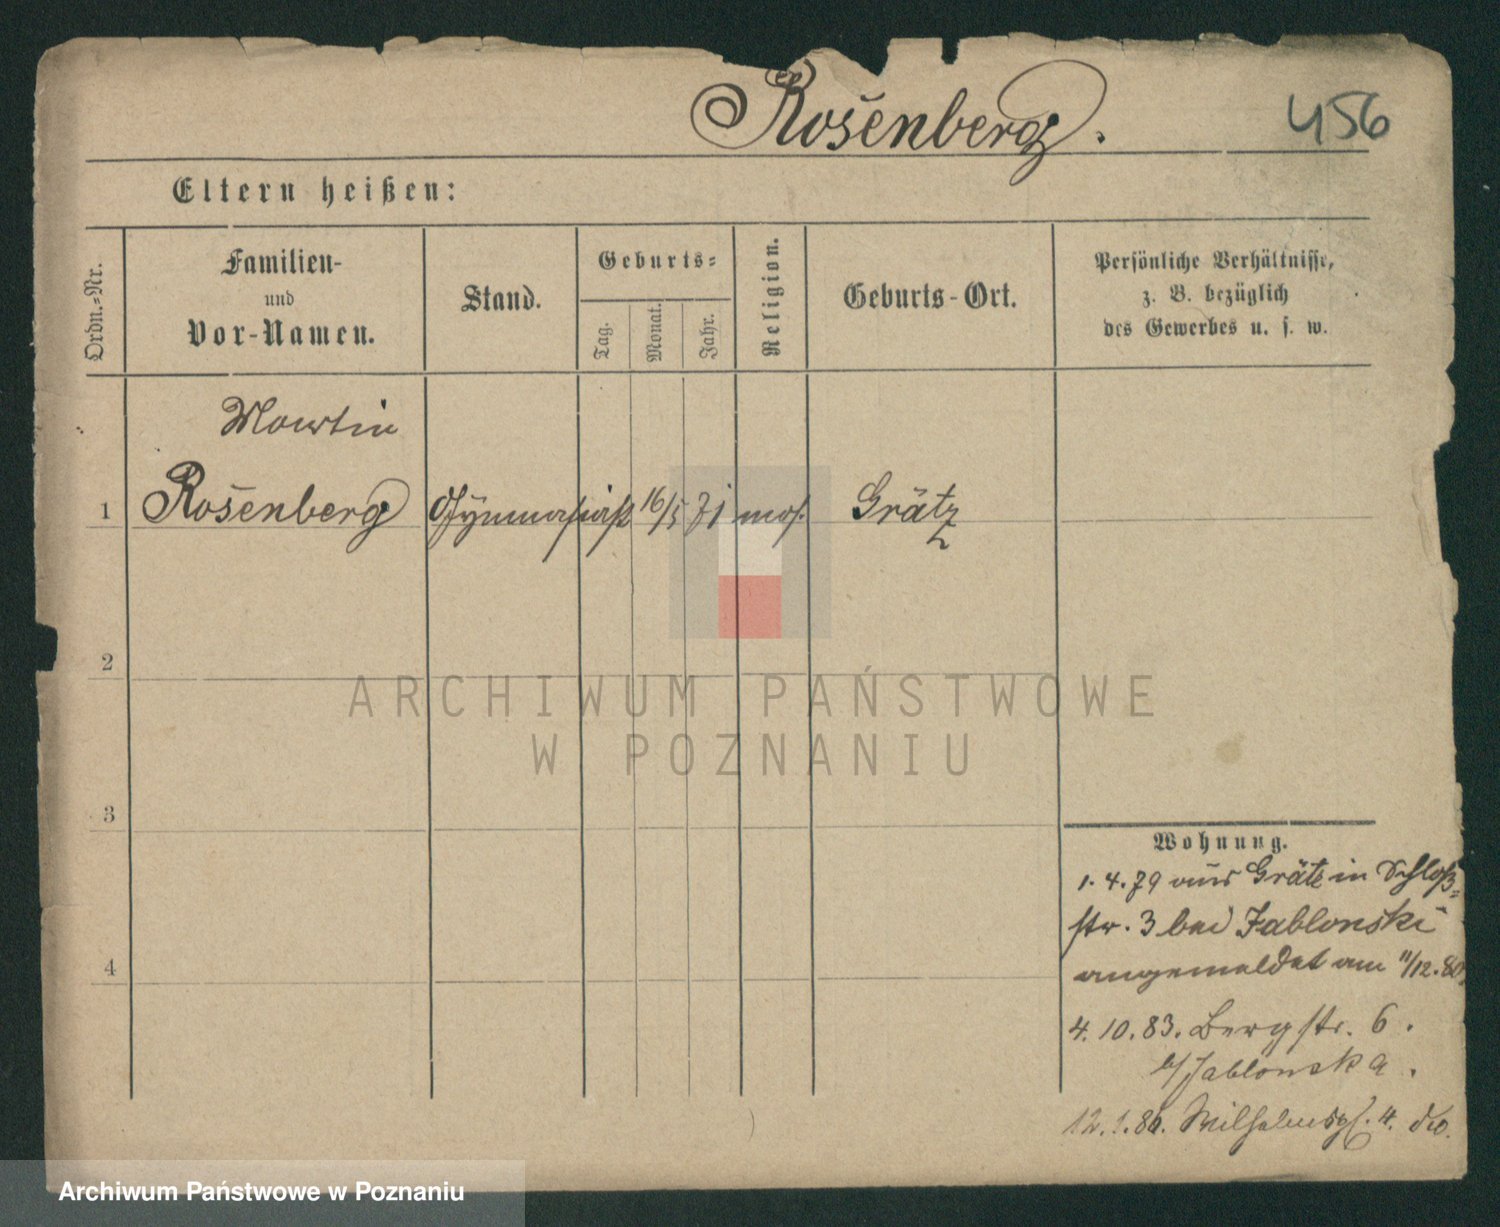 Rosenberg.
456
Eltern heißen:
Ordn.-Nr.
Familien-
und
Vor-Namen.
Stand.
Geburts-
Tag.
Monat.
Jahr.
Religion.
Geburts-Ort.
Persönliche Verhältnisse,
z. B. bezüglich
des Gewerbes u. s. w.
Martin
1 Rosenberg Gymnasiast 16/5 71 mos. Grätz
2
3
4
ARCHIWUM PAŃSTWOWE
W POZNANIU
Wohnung.
1. 4. 79 aus Grätz in Schloß-
str. 3 bei Jablonski
angemeldet am 11/12. 80.
4. 10. 83. Bergstr. 6.
b/Jablonska.
12. 1. 86. Wilhelmspl. 4. do.
Archiwum Państwowe w Poznaniu